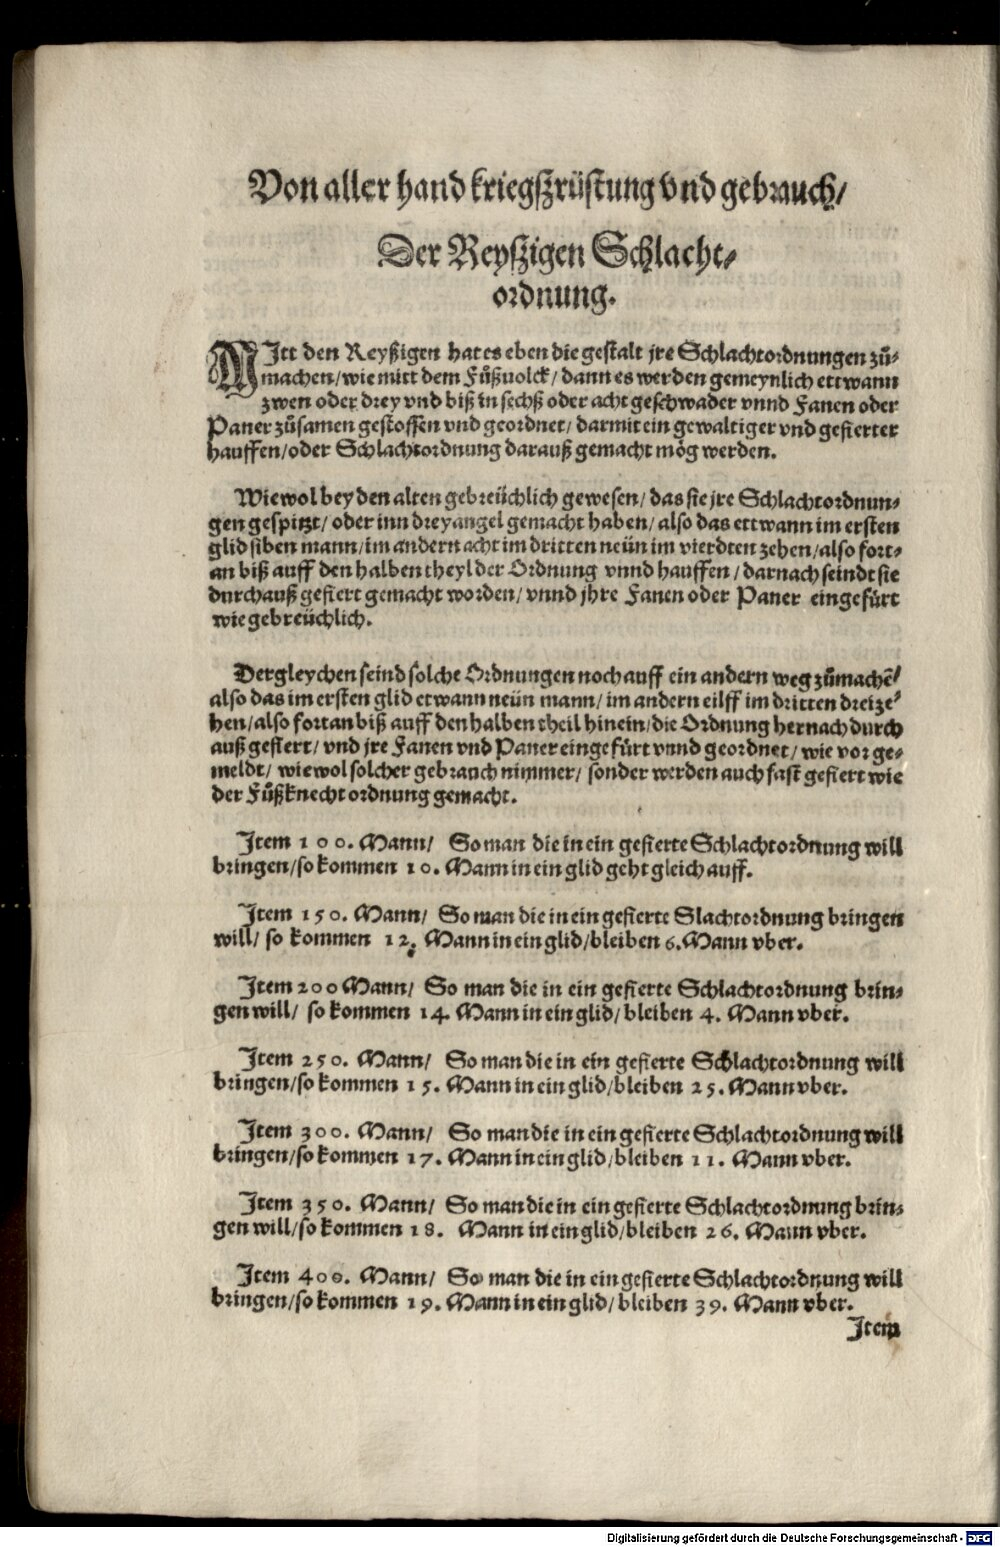 Von aller hand kriegſzrüſtung vnd gebrauch/
Der Reyſzigen Schlacht⸗
ordnung.
MItt den Reyßigen hat es eben die geſtalt jre Schlachtordnungen zů⸗
machen/wie mitt dem Fůßuolck/dann es werden gemeynlich ettwann
zwen oder drey vnd biß in ſechß oder acht geſchwader vnnd Fanen oder
Paner zůſamen geſtoſſen vnd geordnet/darmit ein gewaltiger vnd gefierter
hauffen/oder Schlachtordnung darauß gemacht mög werden.
Wiewol bey den alten gebreüchlich geweſen/das ſie jre Schlachtordnun⸗
gen geſpitzt/oder inn dreyangel gemacht haben/also das ettwann im erſten
glid ſiben mann/im andern acht im dritten neün im vierdten zehen/alſo fort⸗
an biß auff den halben theyl der Ordnung vnnd hauffen/darnach ſeindt ſie
durchauß gefiert gemacht worden/vnnd jhre Fanen oder Paner eingefürt
wie gebreüchlich.
Dergleychen ſeind ſolche Ordnungen noch auff ein andern weg zůmachē/
alſo das im erſten glid etwann neün mann/im andern eilff im dritten dreize⸗
hen/alſo fortan biß auff den halben theil hinein/die Ordnung hernach durch
auß gefiert/vnd jre Fanen vnd Paner eingefürt vnnd geordnet/wie vor ge⸗
meldt/wiewol ſolcher gebrauch nimmer/ſonder werden auch faſt gefiert wie
der Fůßknecht ordnung gemacht.
Item 100. Mann/ So man die in ein gefierte Schlachtordnung will
bringen/ſo kommen 10. Mann in ein glid geht gleich auff.
Item 150. Mann/ So man die in ein gefierte Slachtordnung bringen
will/ ſo kommen 12. Mann in ein glid/bleiben 6. Mann vber.
Item 200 Mann/ So man die in ein gefierte Schlachtordnung brin⸗
gen will/ ſo kommen 14. Mann in ein glid/bleiben 4. Mann vber.
Item 250. Mann/ So man die in ein gefierte Schlachtordnung will
bringen/ſo kommen 15. Mann in ein glid/bleiben 25. Mann vber.
Item 300. Mann/ So man die in ein gefierte Schlachtordnung will
bringen/ſo kommen 17. Mann in ein glid/bleiben 11. Mann vber.
Item 350. Mann/ So man die in ein gefierte Schlachtordnung brin⸗
gen will/ſo kommen 18. Mann in ein glid/bleiben 26. Mann vber.
Item 400. Mann/ So man die in ein gefierte Schlachtordnung will
bringen/ſo kommen 19. Mann in ein glid/bleiben 39. Mann vber.
Item
Digitalisierung gefördert durch die Deutsche Forschungsgemeinschaft - DFG